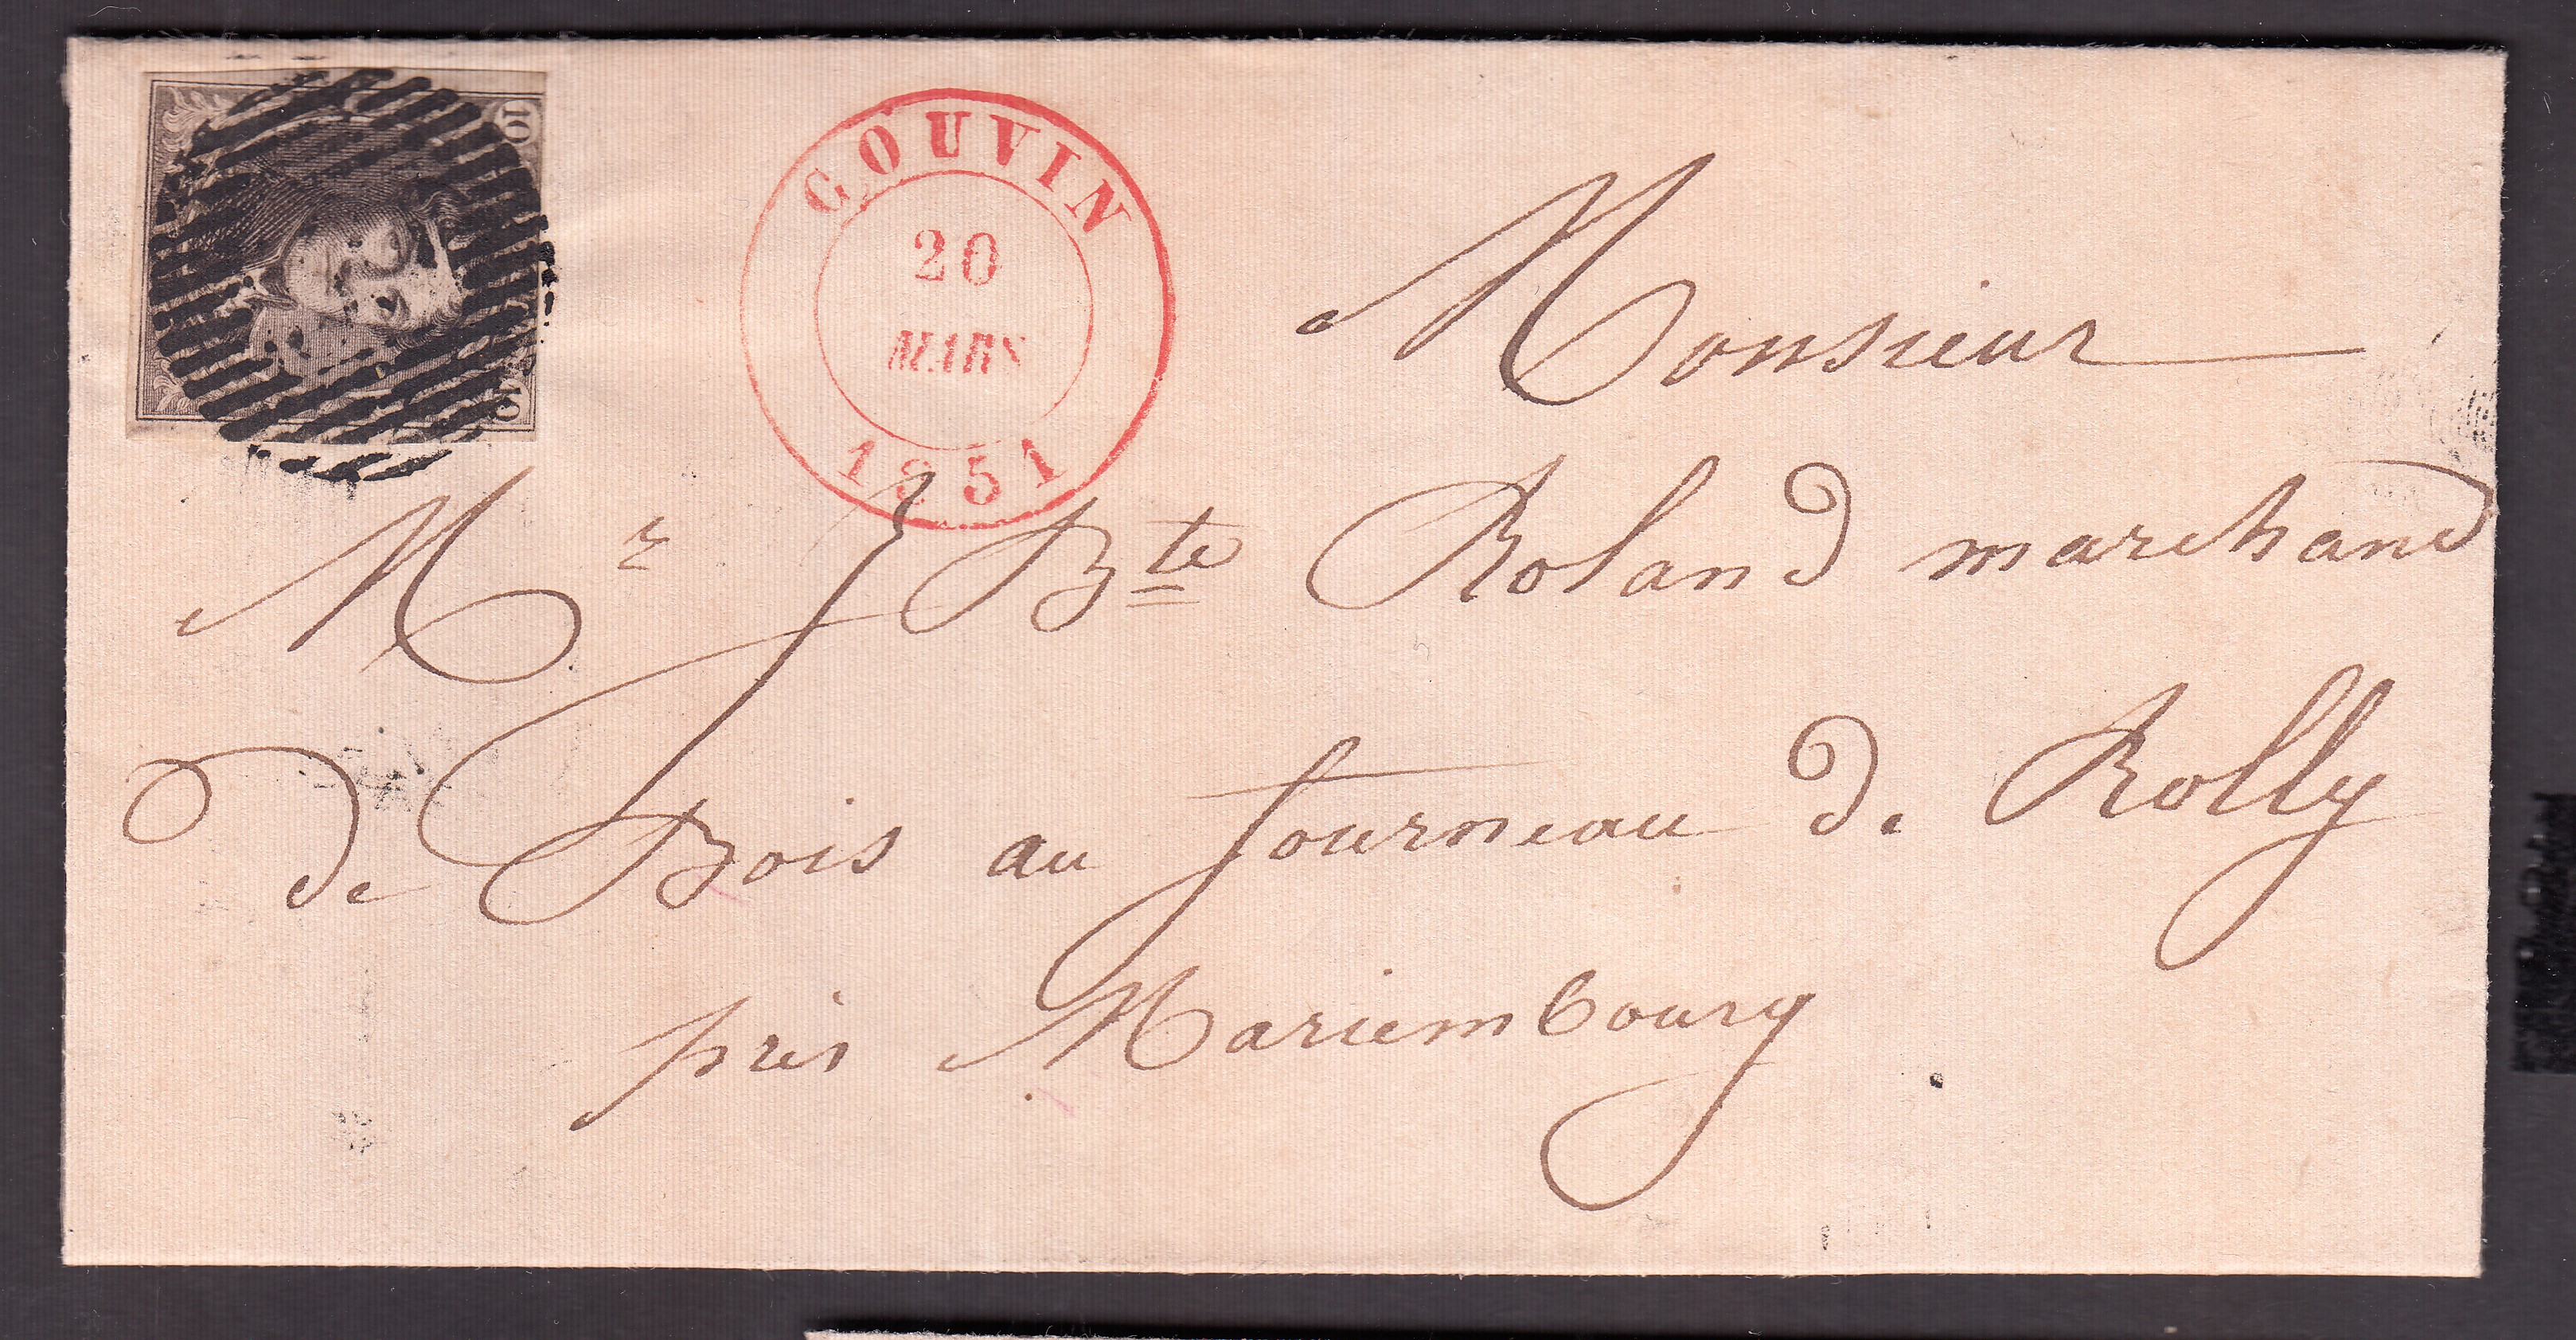 10
10
COUVIN
20
MARS
1851
Monsieur
Mr J Bte Roland marchand
de Bois au fourneau de Rolly
près Mariembourg